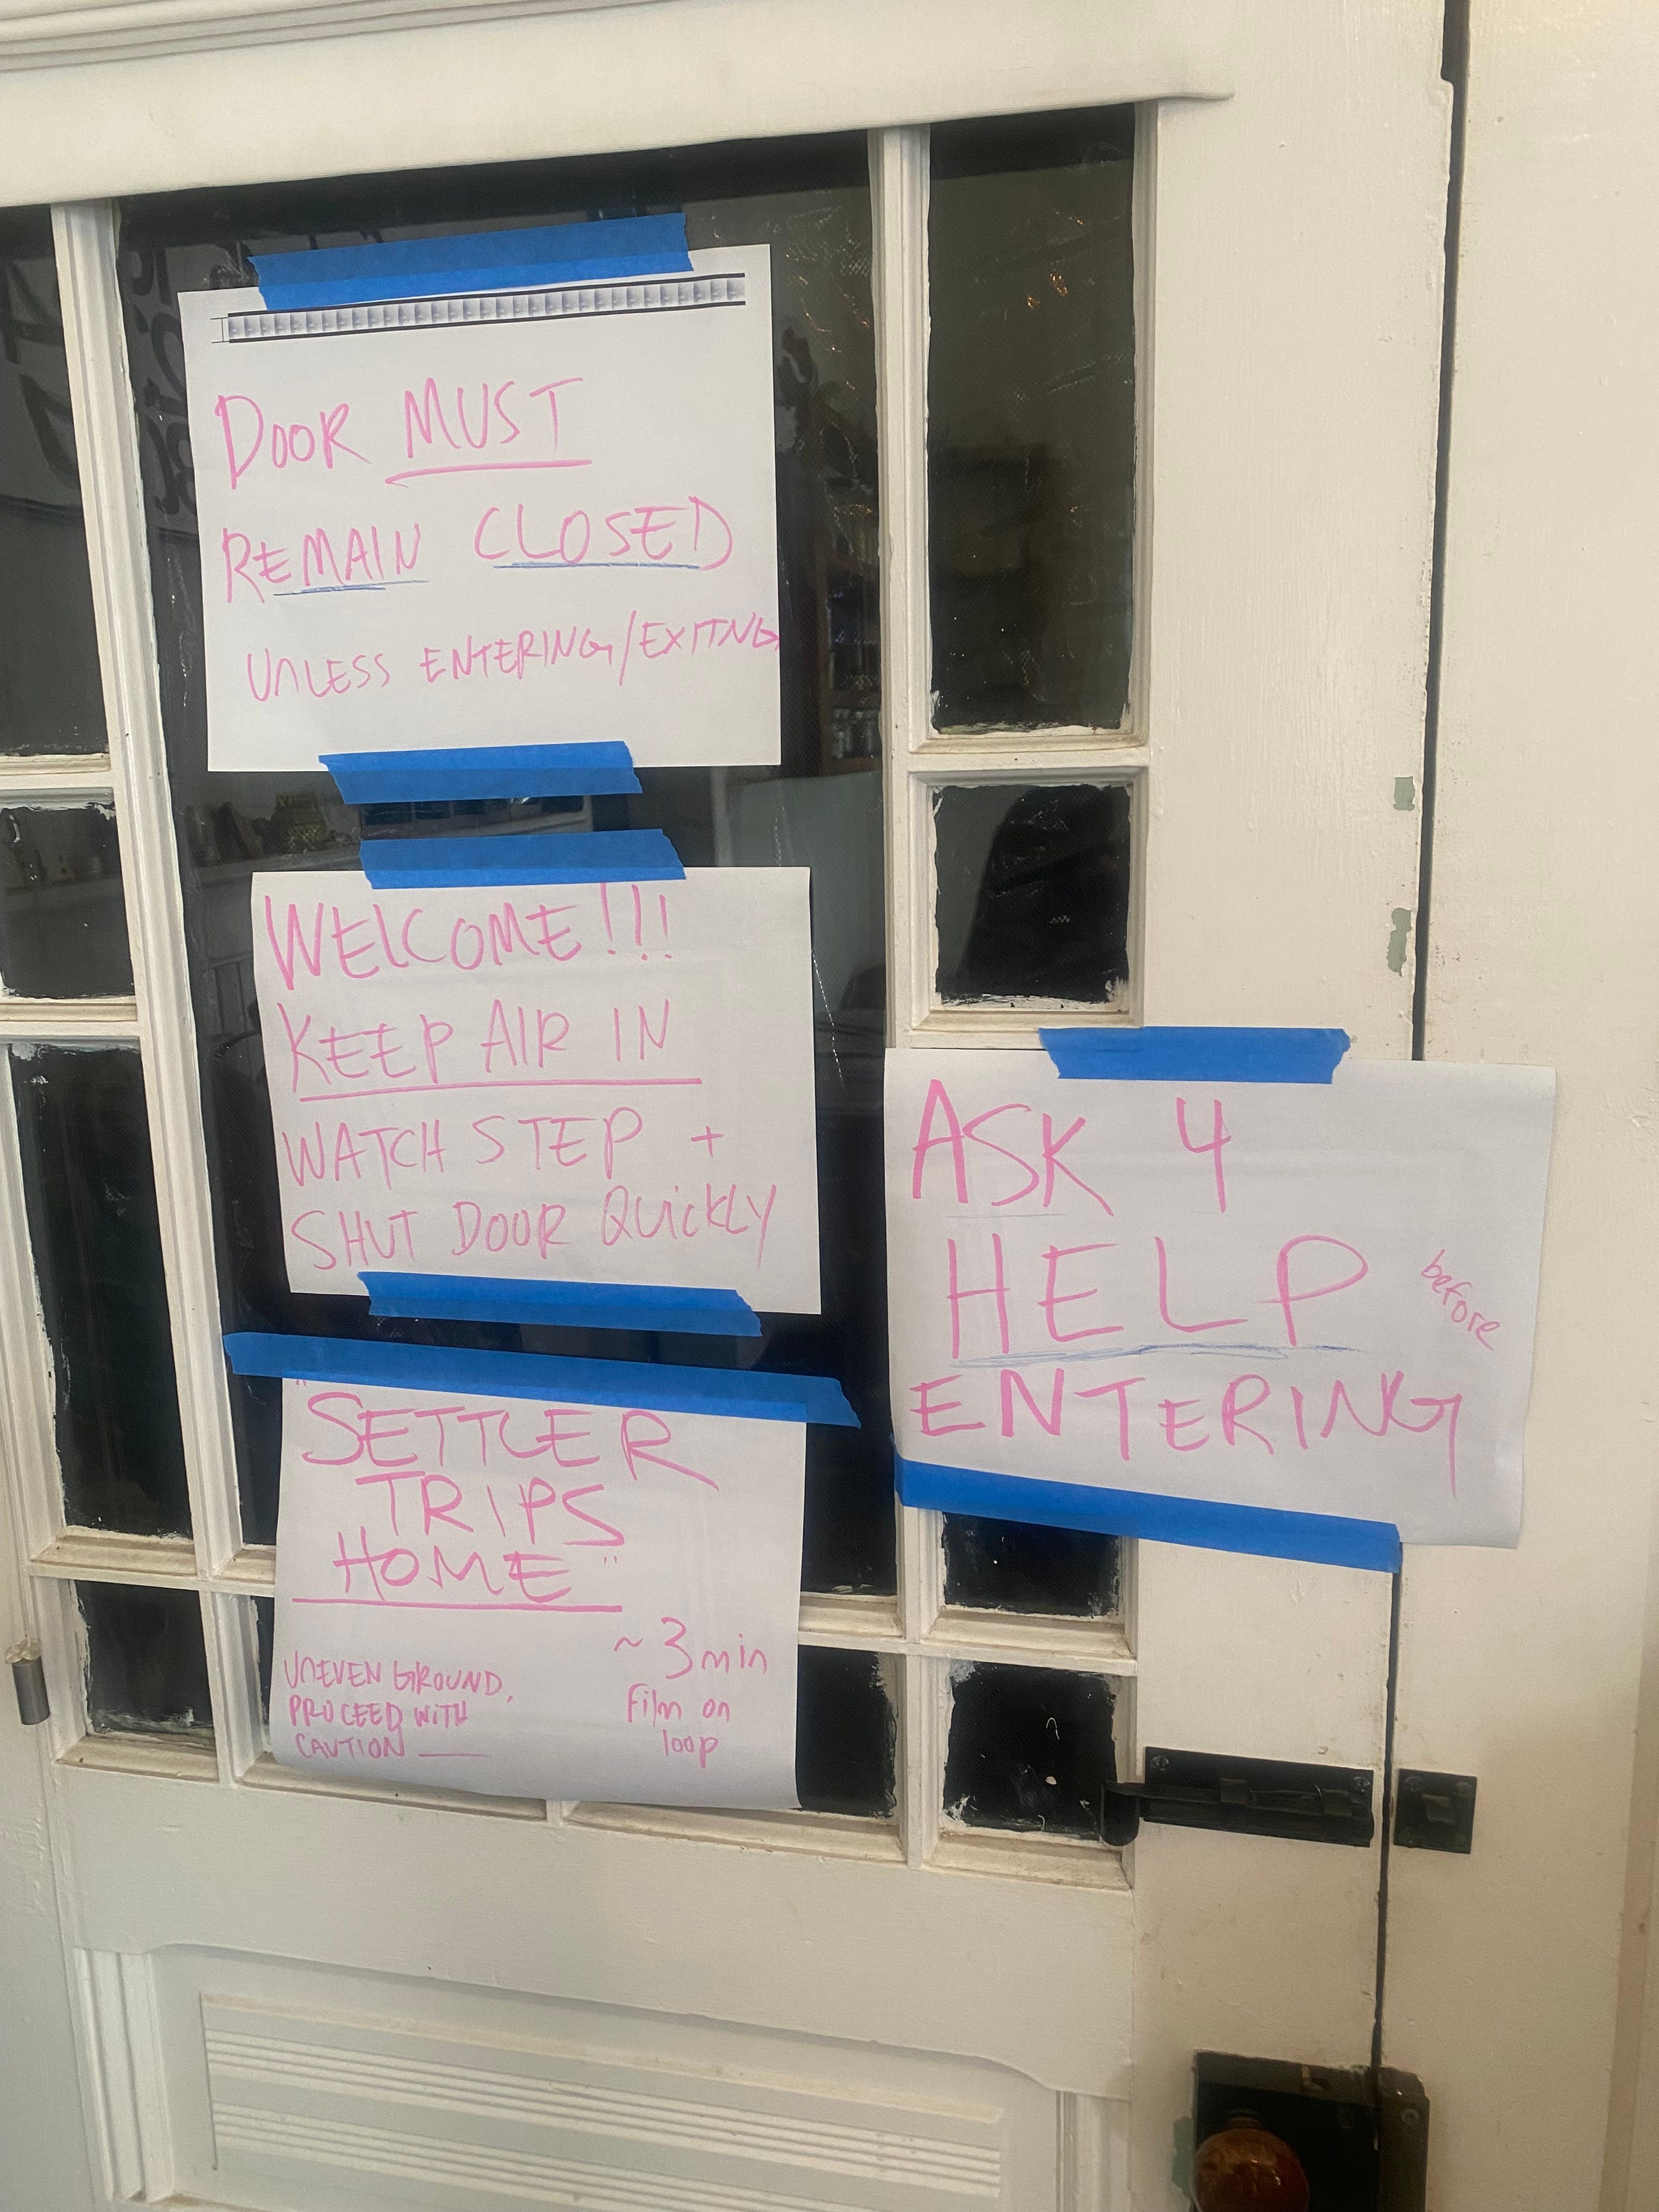 DOOR MUST
REMAIN CLOSED
UNLESS ENTERING/EXITNG
WELCOME!!!
KEEP AIR IN
WATCH STEP +
SHUT DOOR QUICKLY
"SETTLER
TRIPS
HOME"
UNEVEN GROUND,
PROCEED WITH
CAUTION
~3min
film on
loop
ASK 4
HELP before
ENTERING